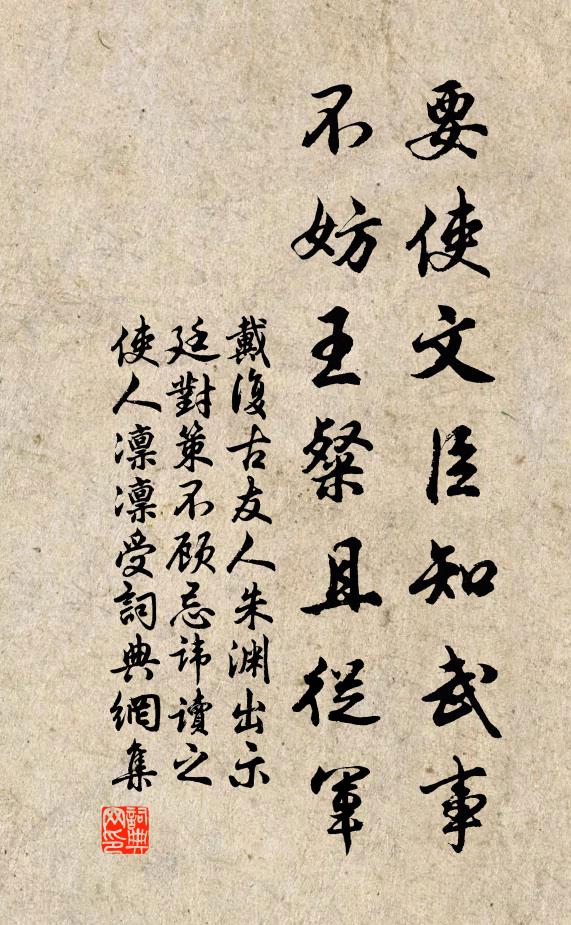 要使文臣知武事
不妨王粲且從軍
戴復古友人朱渊出示
廷對策不顾忌諱讀之
使人凛凛受詞典網集
詞典
网印